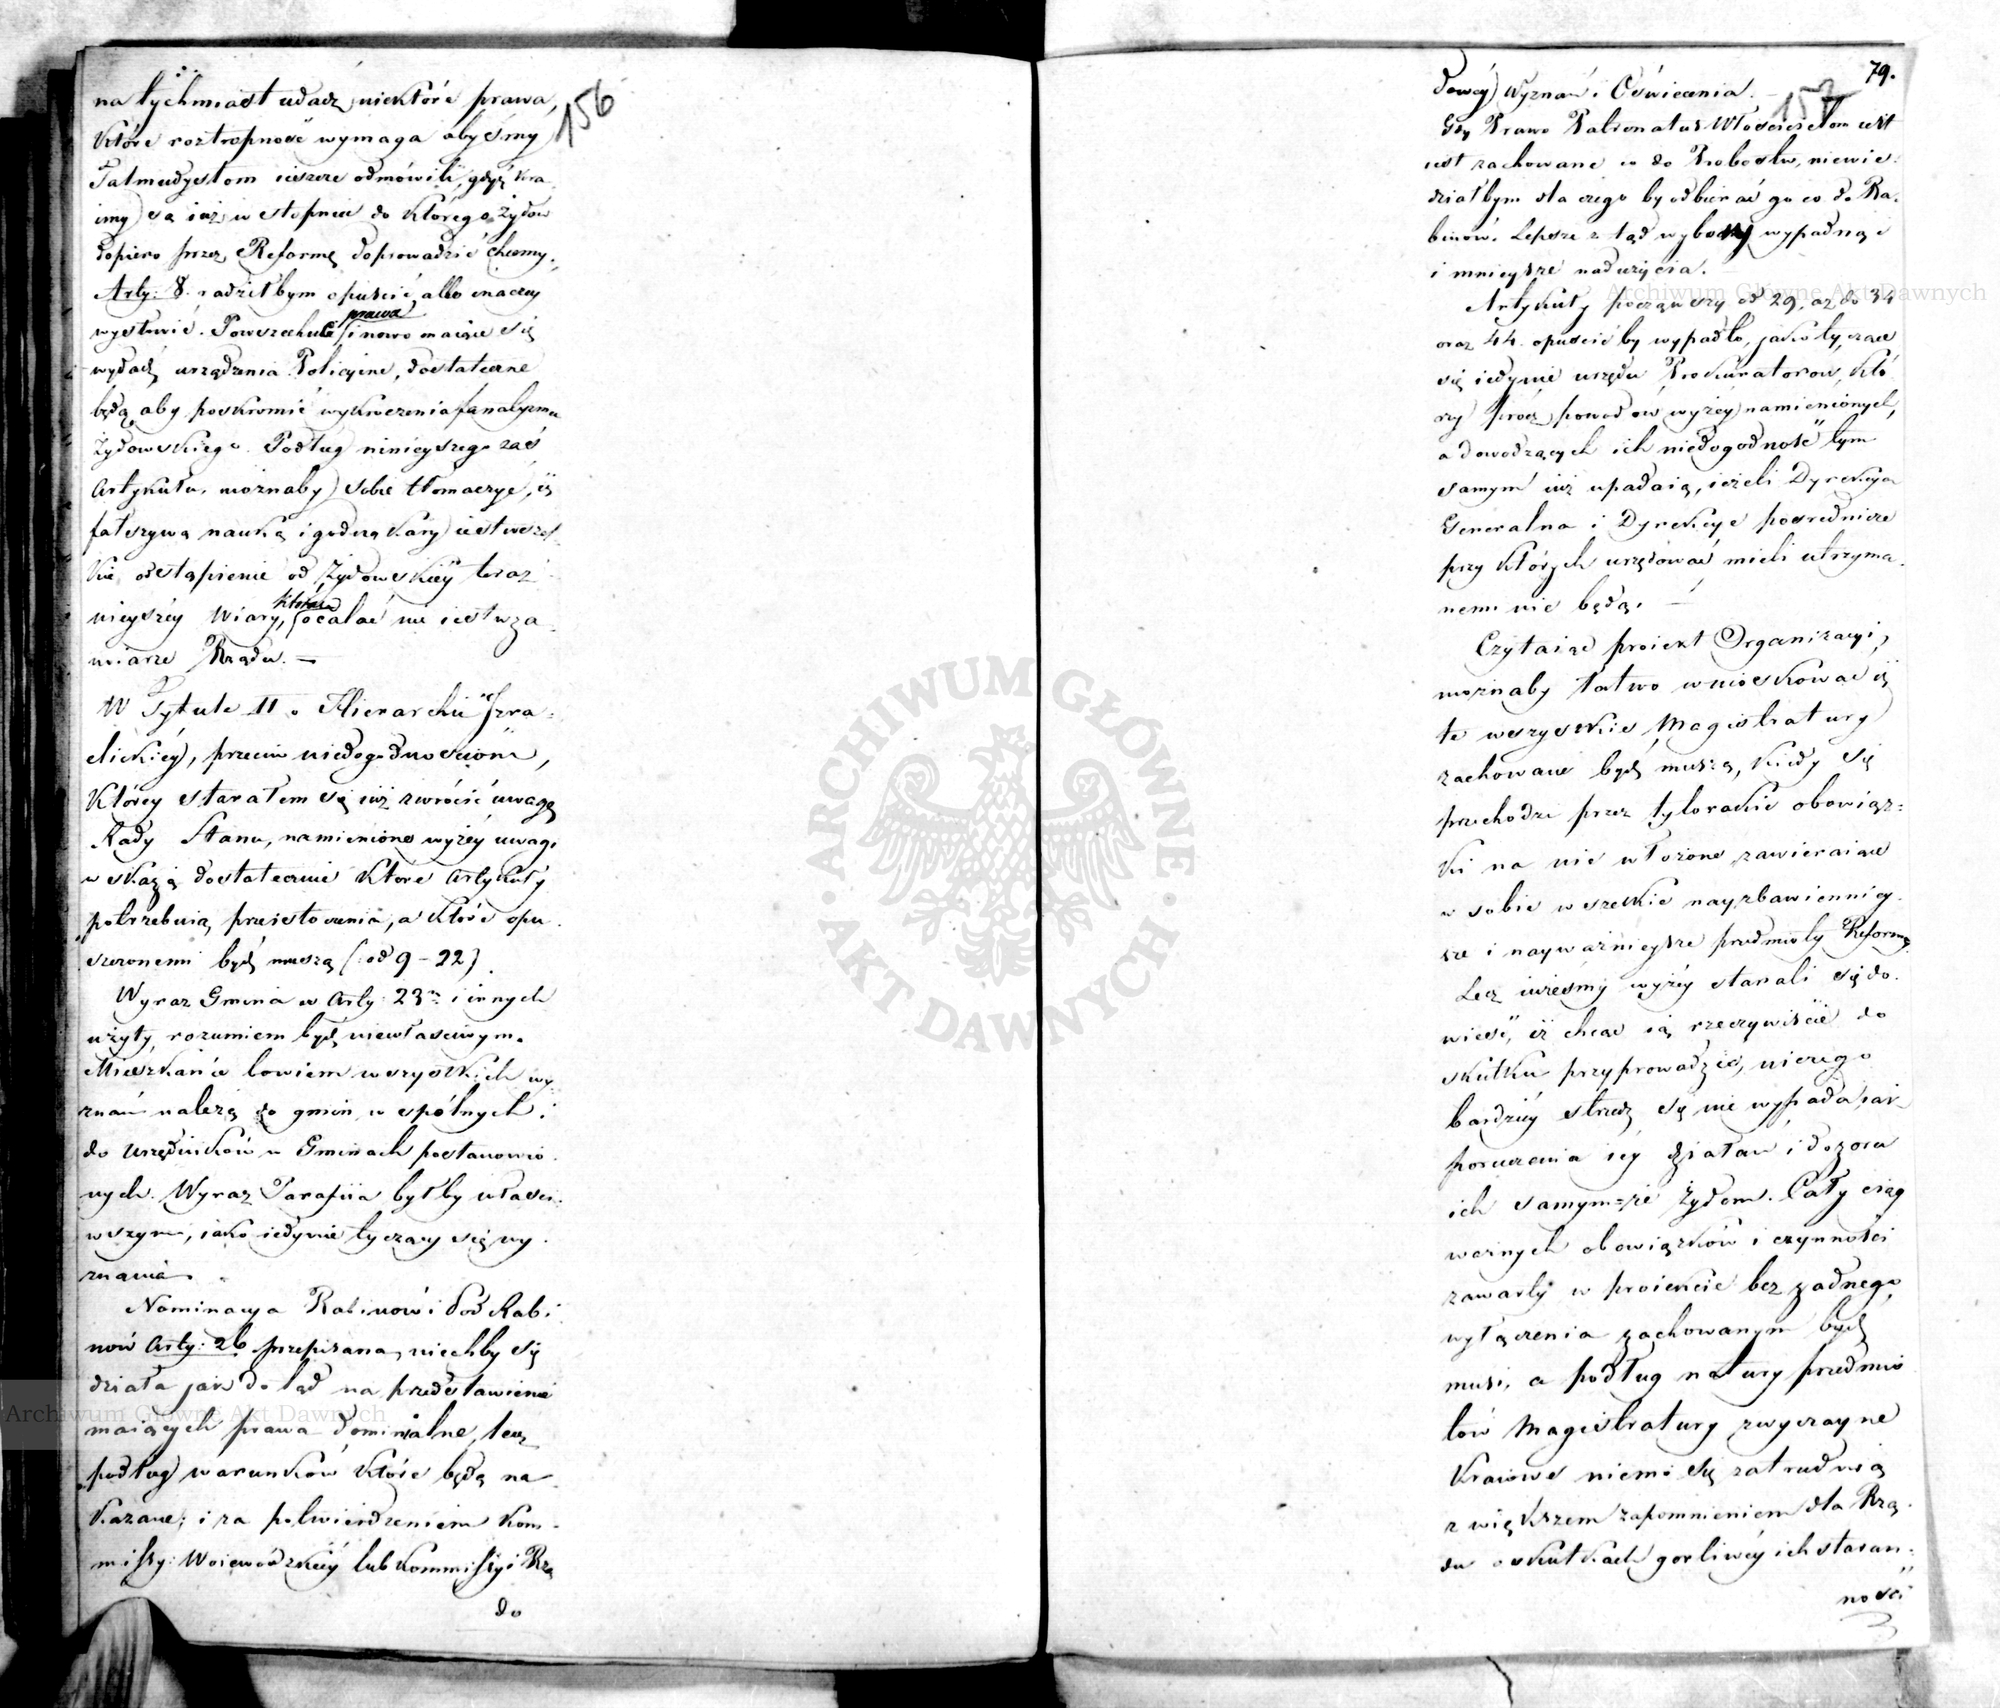 156
natychmiast udadź niektóre prawa,
które roztropność wymaga abyśmy
Talmudystom ieszcze odmówili, gdyż Kra
imy są iuż w stopniu do którego żydów
dopiero przez Reformę doprowadzić chcemy.
Arty: 8. radziłbym opuścić albo inaczey
wystawić. Powszechne prawa i nowo maiące się
wydadź urządzenia Policyine, dostateczne
będą aby poskromić wykroczenia fanatyzmu
Żydowskiego. Podług ninieyszego zaś
Artykułu, możnaby sobie tłomaczyć, iż
fałszywą nauką i godną kary iest wszel-
kie odstąpienie od Żydowskiéy teraz
nieyszéy Wiary, któréy ocalać nie iest w za
miarze Rządu. —
W Tytule II o Hierarchii Izra-
elickiéy, przeciw niedogodnościom,
któréy starałem się iuż zwrócić uwagę
Rady Stanu, namienione wyżéy uwagi
wskażą dostatecznie które Artykuły
potrzebuią przeistoczenia, a które opu
szczonemi bydź muszą (: od 9-22)
Wyraz Gmina w Arty: 23m i innych
użyty, rozumiem bydź niewłaściwym.
Mieszkańcy bowiem wszystkich wy
znań należą do gmin wspólnych i
do Urzędników w Gminach postanowio
nych. Wyraz Parafiia byłby właści
wszym, iako iedynie tyczący się wy
znania.
Nominacya Rabinów i Pod Rabi
nów Arty: 26 przepisana, niechby się
działa jak dotąd na przedstawienie
maiących prawa dominialne, lecz
podług warunków które będą na
kazane; i za potwierdzeniem Kom-
missyi Woiewódzkiéy lub Kommissyi Rzą
do
79.
157
dowéy Wyznań i Oświecenia.
Gdy Prawo Patronatus Właścicielom iest
iest zachowane co do Probostw, niewie-
działbym dla czego by odbierać go co do Ra-
binów. Lepsze z tąd wybory wypadną i
i mnieysze nadużycia.
Artykuły począwszy od 29, aż do 34
oraz 44. opuścić by wypadło, jako tyczące
się iedynie urzędu Prokuratorow, któ
rzy prócz powodów wyżéy namienionych,
a dowodzących ich niedogodność tym
samym iuż upadaią, ieżeli Dyrekcya
Generalna i Dyrekcye pośrednicze
przy których urzędować mieli utrzyma
nemi nie będą. —
Czytaiąc proiekt Organizacyi,
możnaby łatwo wnioskować iż
te wszystkie Magistratury
zachowane bydź muszą, kiedy się
przechodzi przez tylorakie obowiąz-
ki na nie włożone, zawieraiące
w sobie wszelkie nayzbawienniey
sze i nayważnieysze przedmioty Reformy.
Lecz iużeśmy wyżéy starali się do-
wieść, iż chcąc ią rzeczywiście do
skutku przyprowadzić, niczego
bardziéy strzedz się nie wypada, iak
poruczenia iéy działań i dozoru
ich samym-że Żydom. Cały ciąg
ważnych obowiązków i czynności
zawarty w proiekcie bez żadnego
wyłączenia zachowanym bydź
musi, a podług natury przedmio
tów Magistratury zwyczayne
Kraiowe niemi się zatrudnią
z większem zapewnieniem dla Rzą-
du o skutkach gorliwéy ich staran-
ności
ARCHIWUM GŁÓWNE
AKT DAWNYCH
Archiwum Główne Akt Dawnych
Archiwum Główne Akt Dawnych